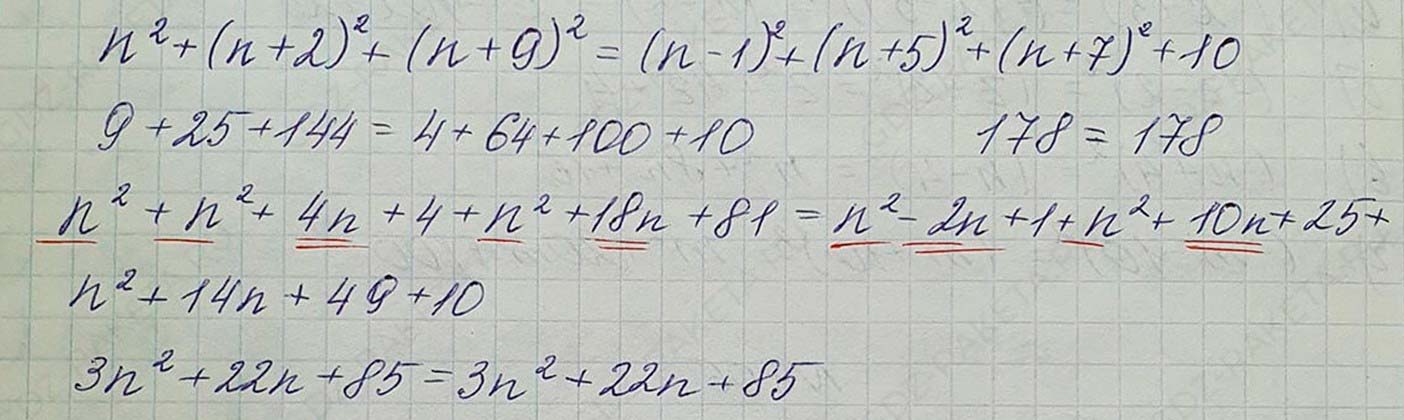 n² + (n + 2)² + (n + 9)² = (n - 1)² + (n + 5)² + (n + 7)² + 10
9 + 25 + 144 = 4 + 64 + 100 + 10 178 = 178
n² + n² + 4n + 4 + n² + 18n + 81 = n² - 2n + 1 + n² + 10n + 25 +
n² + 14n + 49 + 10
3n² + 22n + 85 = 3n² + 22n + 85